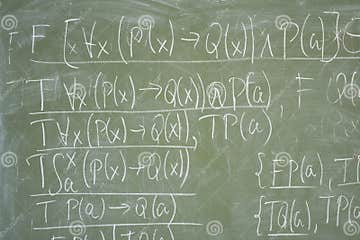 F F [∀x (P(x) → Q(x)) ∧ P(a)] ⊂
T ∀x (P(x) → Q(x)) ∧ P(a), F
T ∀x (P(x) → Q(x)), T P(a)
T S^x_a (P(x) → Q(x))
{F P(a), T
T P(a) → Q(a)
{T Q(a), T P(